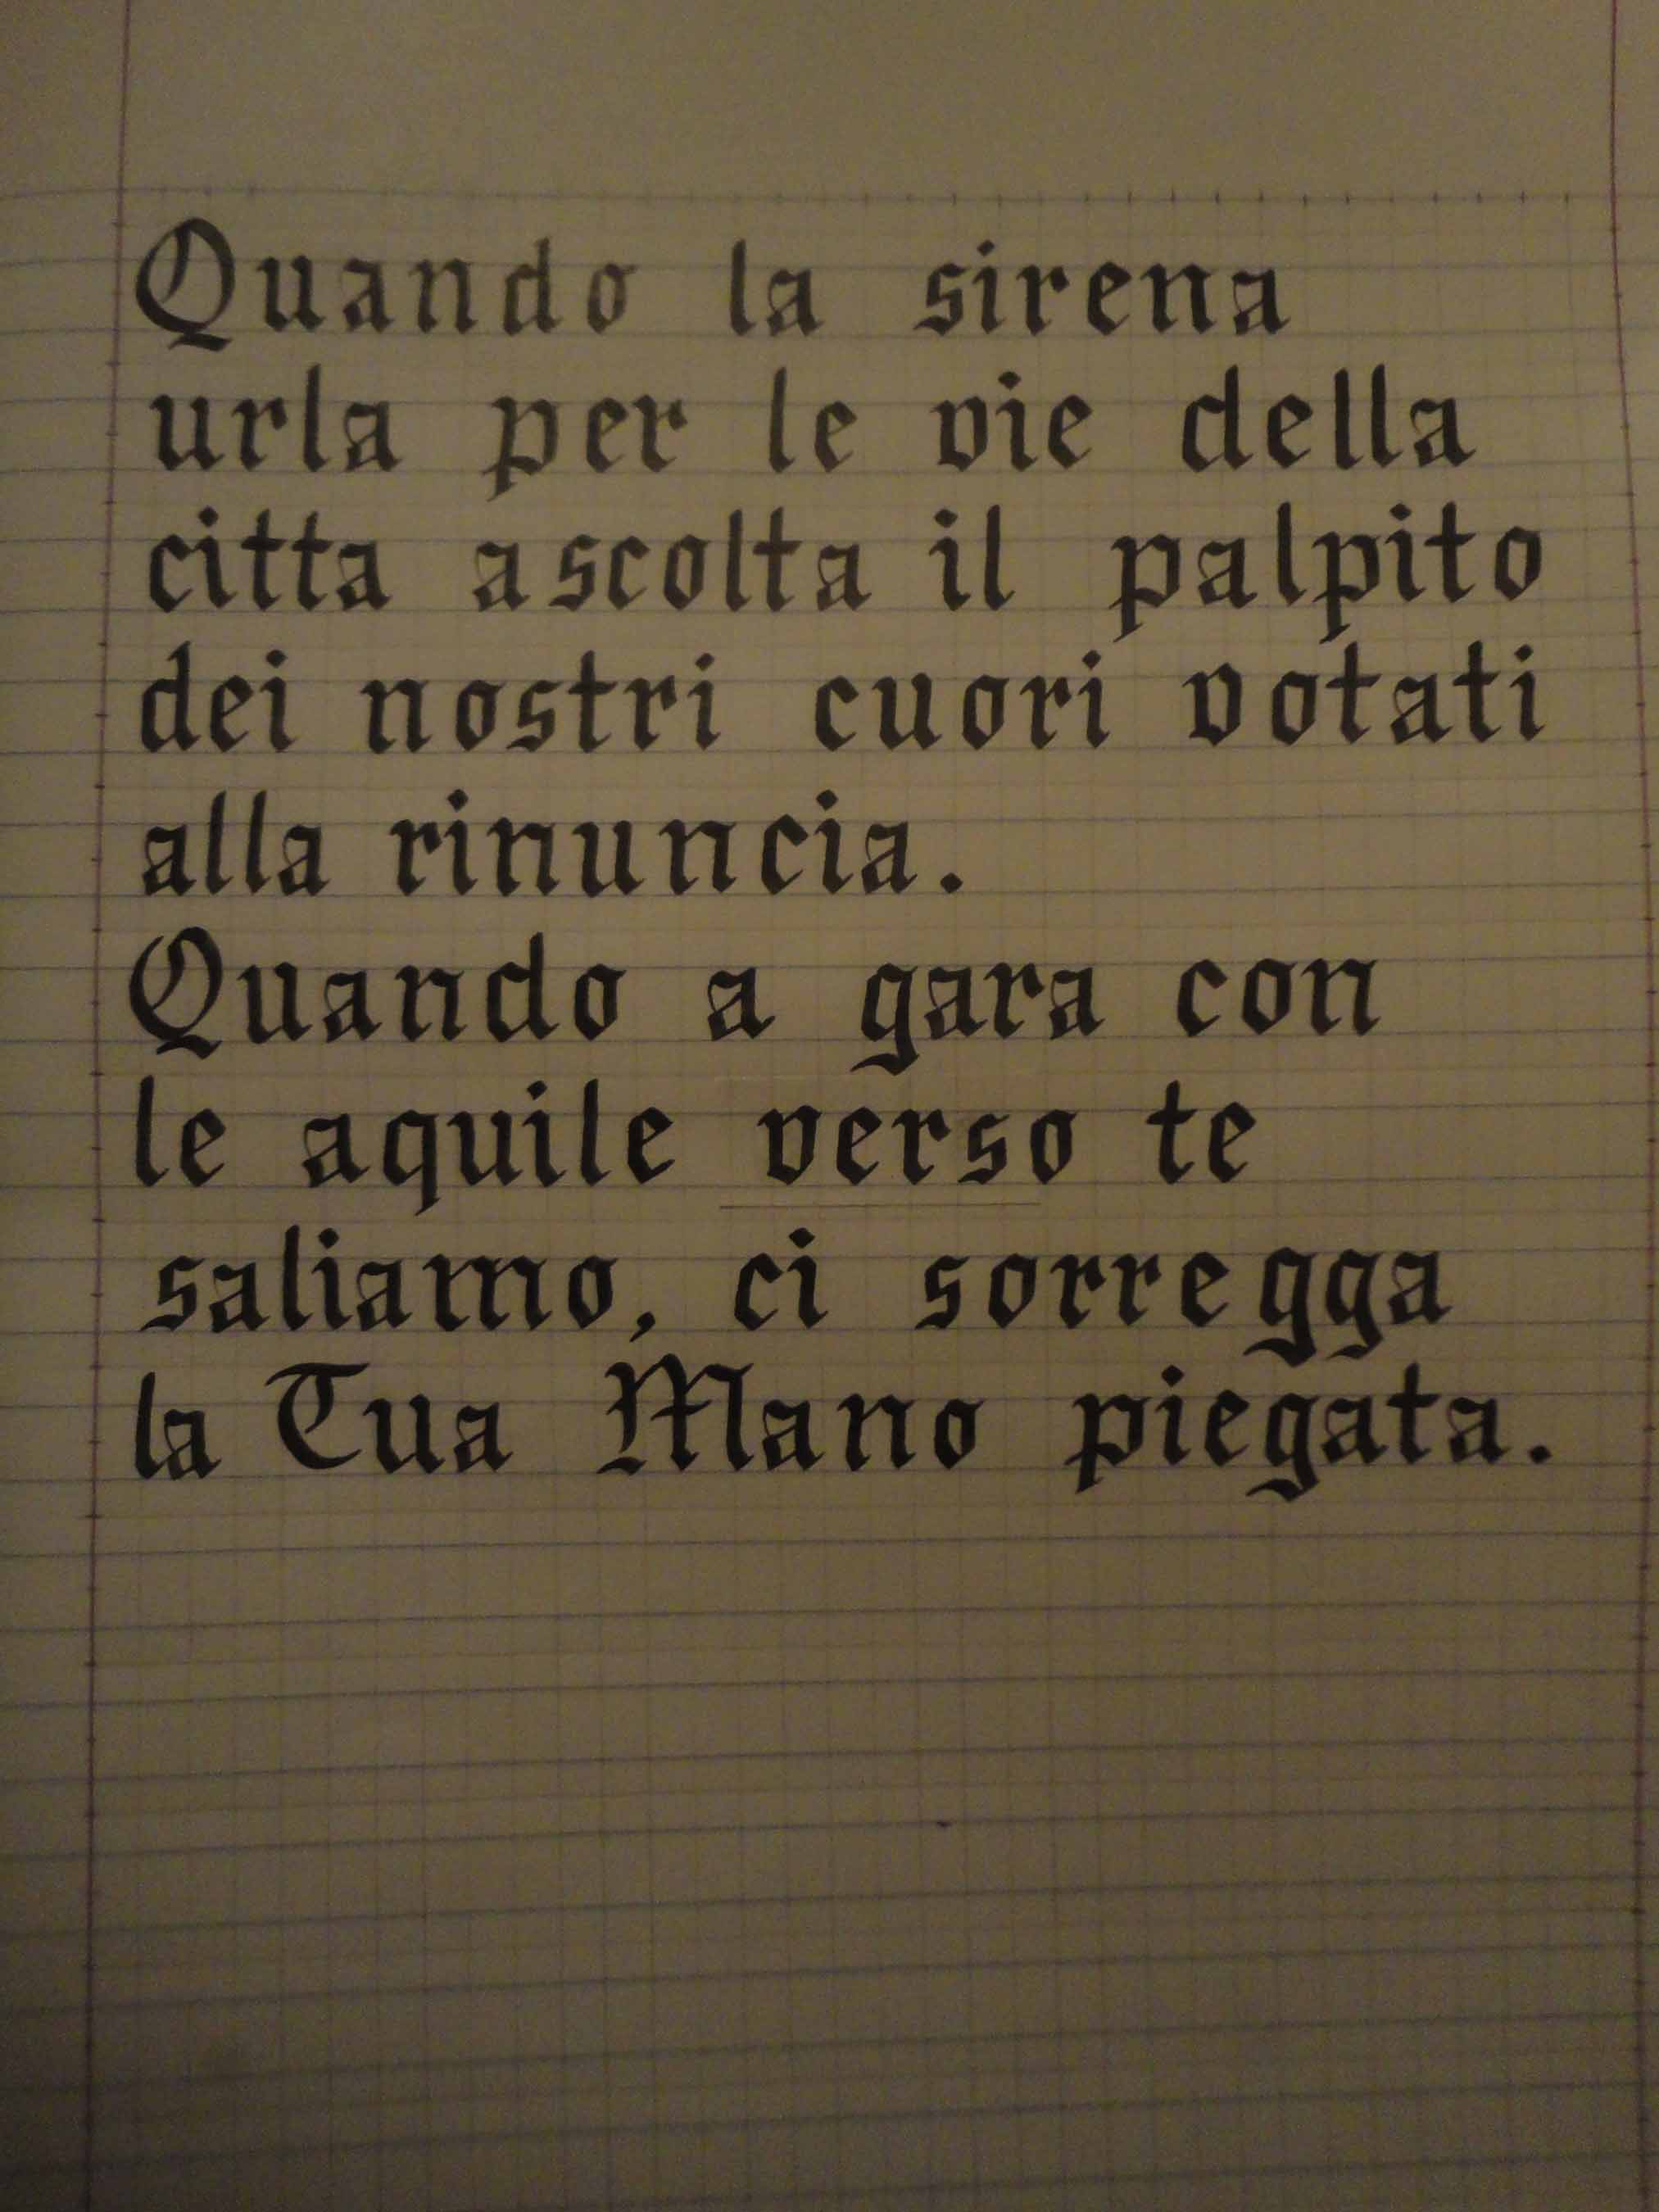 Quando la sirena
urla per le vie della
citta ascolta il palpito
dei nostri cuori votati
alla rinuncia.
Quando a gara con
le aquile verso te
saliamo, ci sorregga
la Tua Mano piegata.